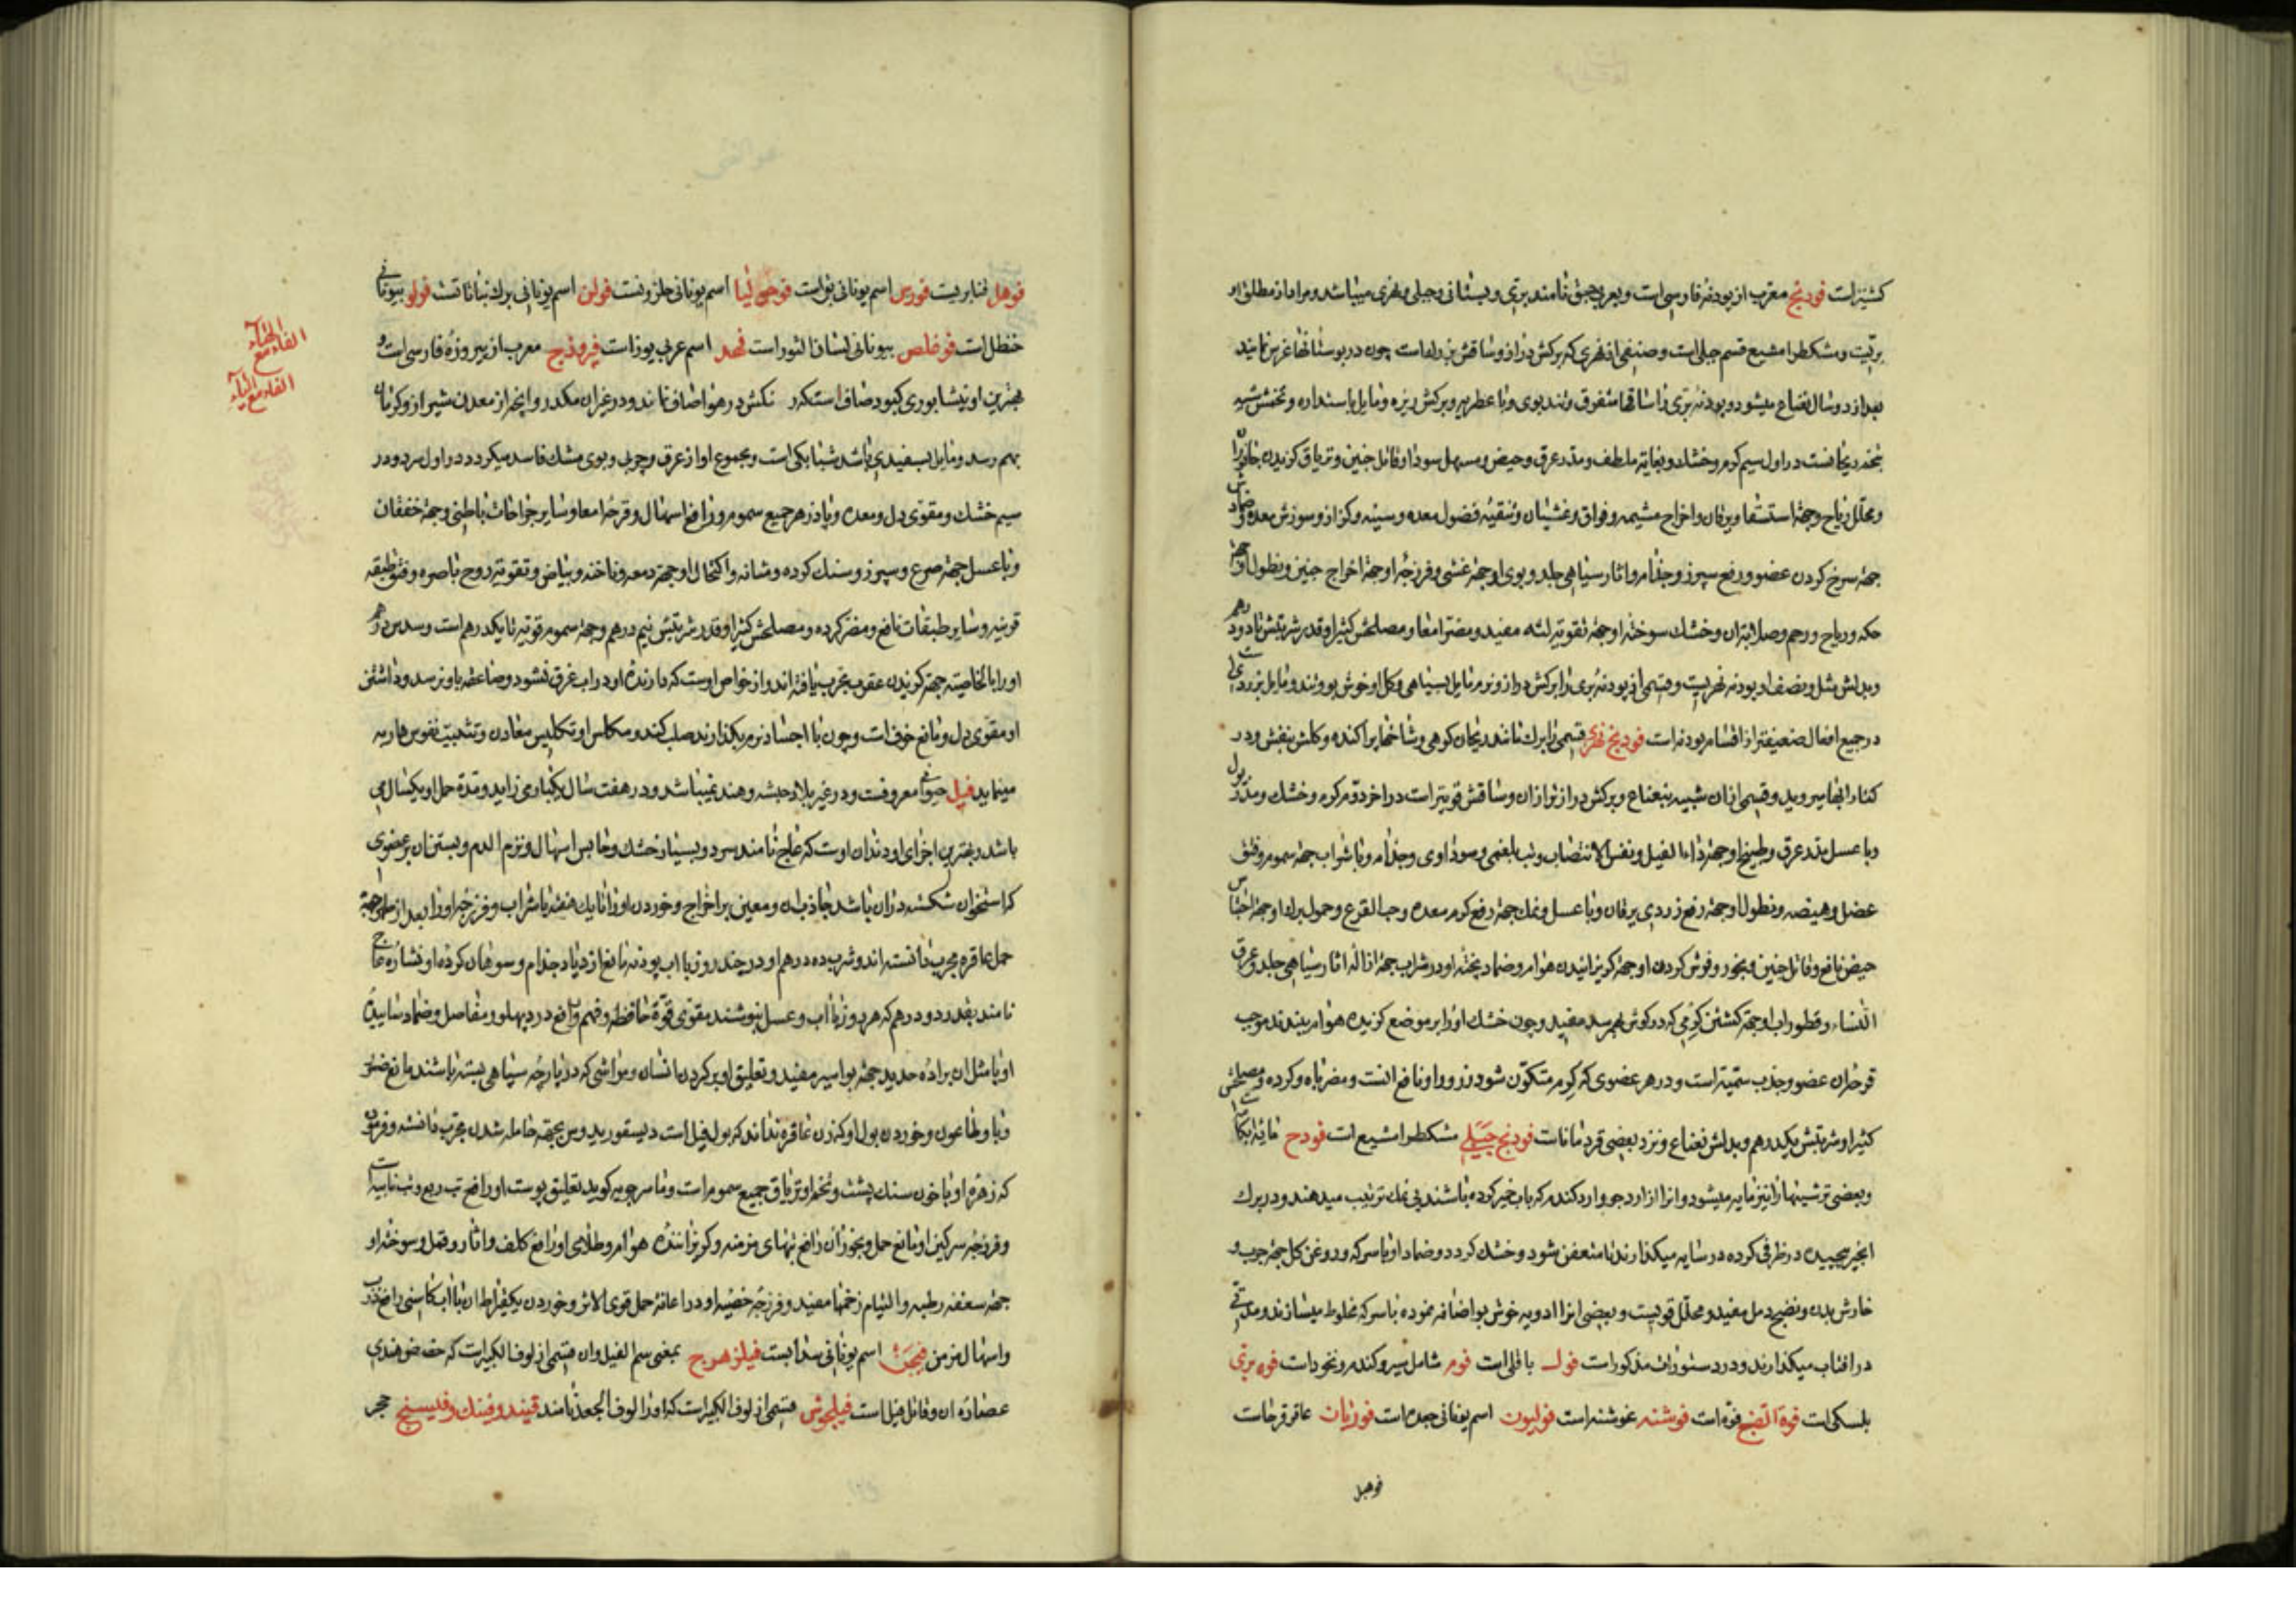 کشنیز است فودنج معرب از پودنه فارسی است و بعربی حبق نامند بری و بستانی و جبلی و نهری میباشد و مراد از مطلق او
بریست و مشکطرامشیع قسم جبلی است و صنفی از نهری که برکش دراز و ساقش بر است چون در بوستانها غرس نمایند
بعد از دو سال نعناع میشود و پودنه بری را ساقها متفرق و تندبوی و با عطریه و برکش ریزه و مایل باستداره و تخمش شبیه
بتخم ریحانست در اول سیم کرم و خشک و بغایت ملطف و مدر عرق و حیض و مسهل سودا و قاتل جنین و تریاق کزیدن جانوران
و محلل ریاح و جهة استسقا و یرقان و اخراج مشیمه و فواق و غشیان و تنقیه فضول معده و سینه و کزاز و سوزش معده و ضماد
جهة سرخ کردن عضو و رفع سپرز و جذام و اثار سیاهی جلد و بوی او جهة غشی و فرزجه او جهة اخراج جنین و نطول او جهة
حکه و ریاح و رحم و صلابة ان و خشک سوخته او جهة تقویة لثه مفید و مضر امعا و مصلحش کثیرا و قدر شربتش تا دو درهم
و بدلش مثل و نصف او پودنه نهریست و قسمی از پودنه بری را برکش دراز و نرم مایل بسیاهی و کل او خوش بو و تند و مایل بزردی است
در جمیع افعال ضعیفتر از اقسام پودنه است فودنج نهری قسمی را برك مانند ریحان کوهی و شاخها پراکنده و کلش بنفش و در
کنار ابها میروید و قسمی از ان شبیه بنعناع و برکش درازتر از ان و ساقش قویتر است در اخر دوم کرم و خشک و مدر بول
و با عسل مدر عرق و طبیخ او جهة داء الفیل و نفس الانتصاب و تب بلغمی و سوداوی و جذام و با شراب جهة سموم و فتق
عضل و هیضه و نطول او جهة رفع زردی یرقان و با عسل و نمك جهة رفع کرم معده و حب القرع و حمول او جهة احتباس
حیض نافع و قاتل جنین و بخور و فرش کردن او جهة کریزانیدن هوام و ضماد پخته او در شراب جهة ازاله اثار سیاهی جلد و عرق
النساء و قطور اب او جهة کشتن کرمی که در کوش بهم رسد مفید و چون خشک او را بر موضع کزیده هوام بندند موجب
قرحه ان عضو و جذب سمیة است و در هر عضوی که کرم متکون شود زرور او نافع انست و مضر باه و کرده و مصلحش
کثیرا و شربتش یکدرهم و بدلش نعناع و نزد بعضی قردماناست فودنج جبلی مشکطرامشیع است فودح
و بعضی ترشیها را نیز مایه میشود و انرا از ارد جو وارد کندم که باب خمیر کرده باشند بی نمك ترتیب میدهند و در برك
انجیر پیچیده در ظرفی کرده در سایه میکذارند تا متعفن شود و خشك کردد و ضماد او با سرکه و روغن کل جهة جرب و
خارش بدن و نضج دمل مفید و محلل قویست و بعضی انرا ادویه خوش بو اضافه نموده با سرکه مخلوط میسازند و مدتی
در افتاب میکذارند و در دستورات مذکور است فول باقلی است فوم شامل سیر و کندم و نخود است فوه بری
بلسکی است فوة الصبغ فوه است فوشنه غوشنه است فولیون اسم یونانی جعده است فوزیان عاقرقرحاست
فوهل
فوهل است فورس اسم یونانی است فوجی لیا اسم یونانی حلزونست فولن اسم یونانی برك است فولو بیونانی
حنظل است فوغلص بیونانی لسان الثور است فهد اسم عربی یوز است فیروزج معرب از پیروزه فارسی است و
بهترین او نیشابوری کبود صاف است که رنکش در هوا صاف ماند و در غیر ان مکدر و انچه از معدن شیراز و کرمان
بهم رسد و مایل بسفیدی باشد شبانکی است و مجموع او از عرق و چربی و بوی مشك فاسد میکردد در اول سرد و در
سیم خشك و مقوی دل و معده و پادزهر جمیع سموم و رافع اسهال و قرحه امعا و سایر جراحات باطنی و جهة خفقان
و با عسل جهة صرع و سپرز و سنك کرده و مثانه و اکتحال او جهة دمعه و ناخنه و بیاض و تقویة روح باصره و فتق طبقه
قرنیه و سایر طبقات نافع و مضر کرده و مصلحش کثیرا و قدر شربتش نیم درهم و جهة سموم قویه تا یکدرهم است و سدس درهم
او را بالخاصیة جهة کزیدن عقرب مجرب یافته اند و از خواص اوست که دارنده او در اب غرق نشود و صاعقه باو نرسد و داشتن
او مقوی دل و مانع خوف است و چون با اجساد نرم بکدازند صلب کند و مکلس او تکلیس معادن و تثبیت نفوس هاربه
مینماید فیل حیوانی معروفست و در غیر بلاد حبشه و هند نمیباشد و در هفت سال یکبار می زاید و مدة حمل او یکسال می
باشد و بهترین اجزای او دندان اوست که عاج نامند سرد و بسیار خشك و حابس اسهال و نزف الدم و بستن ان بر عضوی
که استخوان شکسته در ان باشد جاذب ان و معین بر اخراج و خوردن او را تا یك هفته با شراب و فرزجه او را بعد از طهر جهة
حمل عاقره مجرب دانسته اند و شرب ده درهم او در چند روز با اب پودنه مانع ازدیاد جذام و سوهان کرده او نشاره عاج
نامند بقدر دو درهم که هر روز با اب و عسل بنوشند مقوی قوة حافظه و فهم و رافع درد پهلو و مفاصل و ضماد ساییده
او با مثل ان براده حدید جهة بواسیر مفید و تعلیق او بر کردن انسان و مواشی که در پارچه سیاهی بسته باشند مانع ضرر
وبا و طاعون و خوردن بول او که زن عاقره نداند که بول فیل است دیسقوریدوس بجهة حامله شدن مجرب دانسته و فرموده
که زهره او با خون سنك پشت و تخم او تریاق جمیع سموم است و ماسرجویه کوید تعلیق پوست او رافع تب ربع و تب نایبه است
و فرزجه سرکین او مانع حمل و بخور ان رافع تبهای مزمنه و کریزاننده هوام و طلای او رافع کلف و اثار و قمل و سوخته او
جهة سعفه رطبه و التیام زخمها مفید و فرزجه خصیه او در اعانة حمل قوی الاثر و خوردن یکقیراط ان با اب کاسنی رافع
و اسهال مزمن فیجن اسم یونانی سدابست فیلزهرج بمعنی سم الفیل و ان قسمی از لوف الکبیر است که حضض هندی
عصاره ان و قاتل فیل است فیلجوش قسمی از لوف الکبیر است که او را لوف الجعد نامند فیند و فینك و فیسنج حجر
الفاء مع الهاء
الفاء مع الیاء